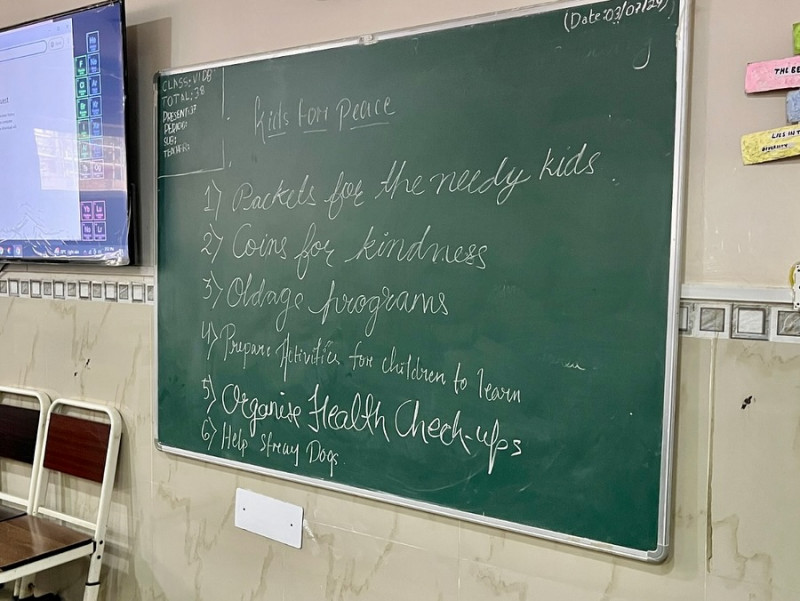 (Date:03/07/24)
CLASS: VI DB
TOTAL: 38
PRESENT: 37
PERIOD:
SUB:
TEACHER:
Kids for Peace
1) Packets for the needy kids
2) Coins for kindness
3) Oldage programs
4) Prepare Activities for children to learn
5) Organise Health Check-ups
6) Help Stray Dogs.
THE BE
LIES IN T